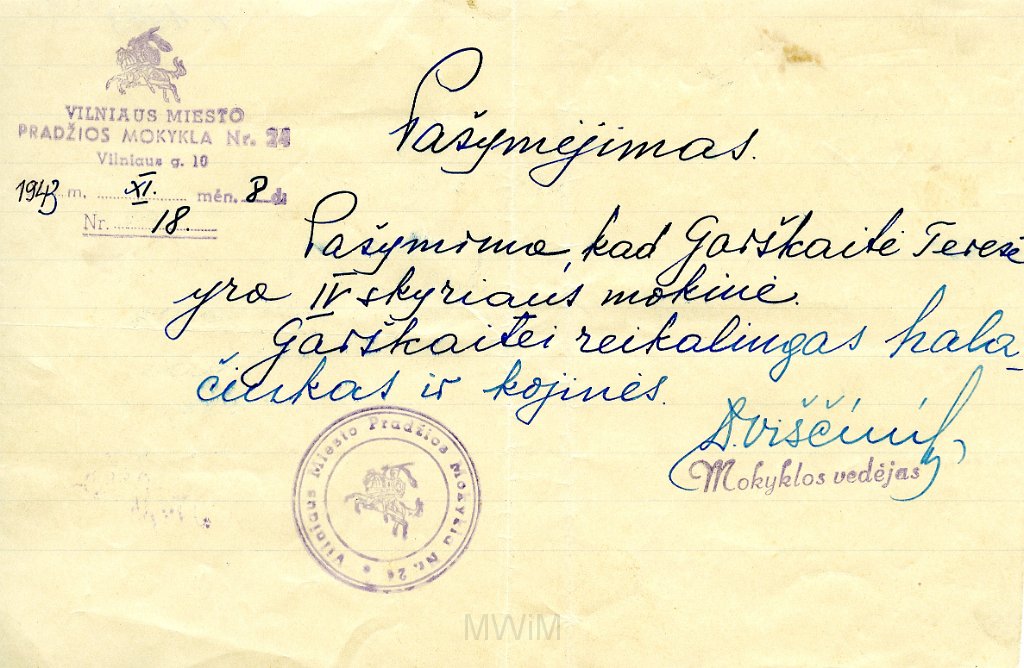 VILNIAUS MIESTO
PRADŽIOS MOKYKLA Nr. 24
Vilniaus g. 10
1943 m. XI. mėn. 8 d.
Nr. 18.
Pašymėjimas.
Pašymima, kad Garškaitė Teresė
yra IV skyriaus mokinė.
Garškaitei reikalingas hala-
čiukas ir kojinės.
Mokyklos vedėjas
Vilniaus Miesto Pradžios Mokykla Nr. 24
MWiM